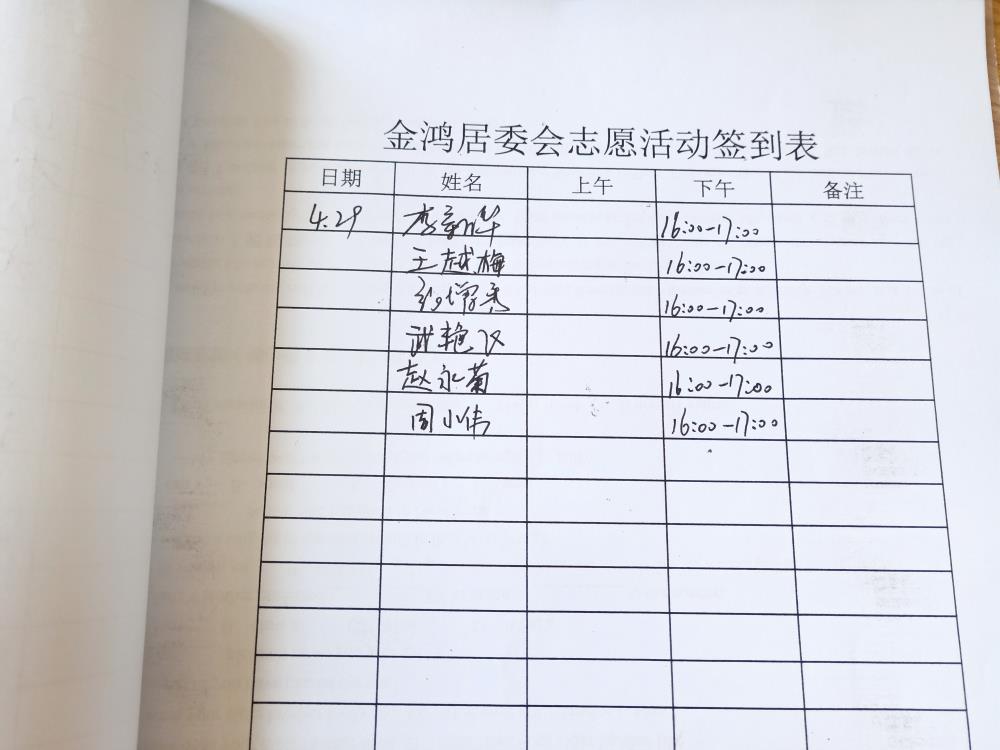 金鸿居委会志愿活动签到表
日期 姓名 上午 下午 备注
4.29 李新华 16:00-17:00
王越梅 16:00-17:00
16:00-17:00
武艳 16:00-17:00
赵永菊 16:00-17:00
周小伟 16:00-17:00